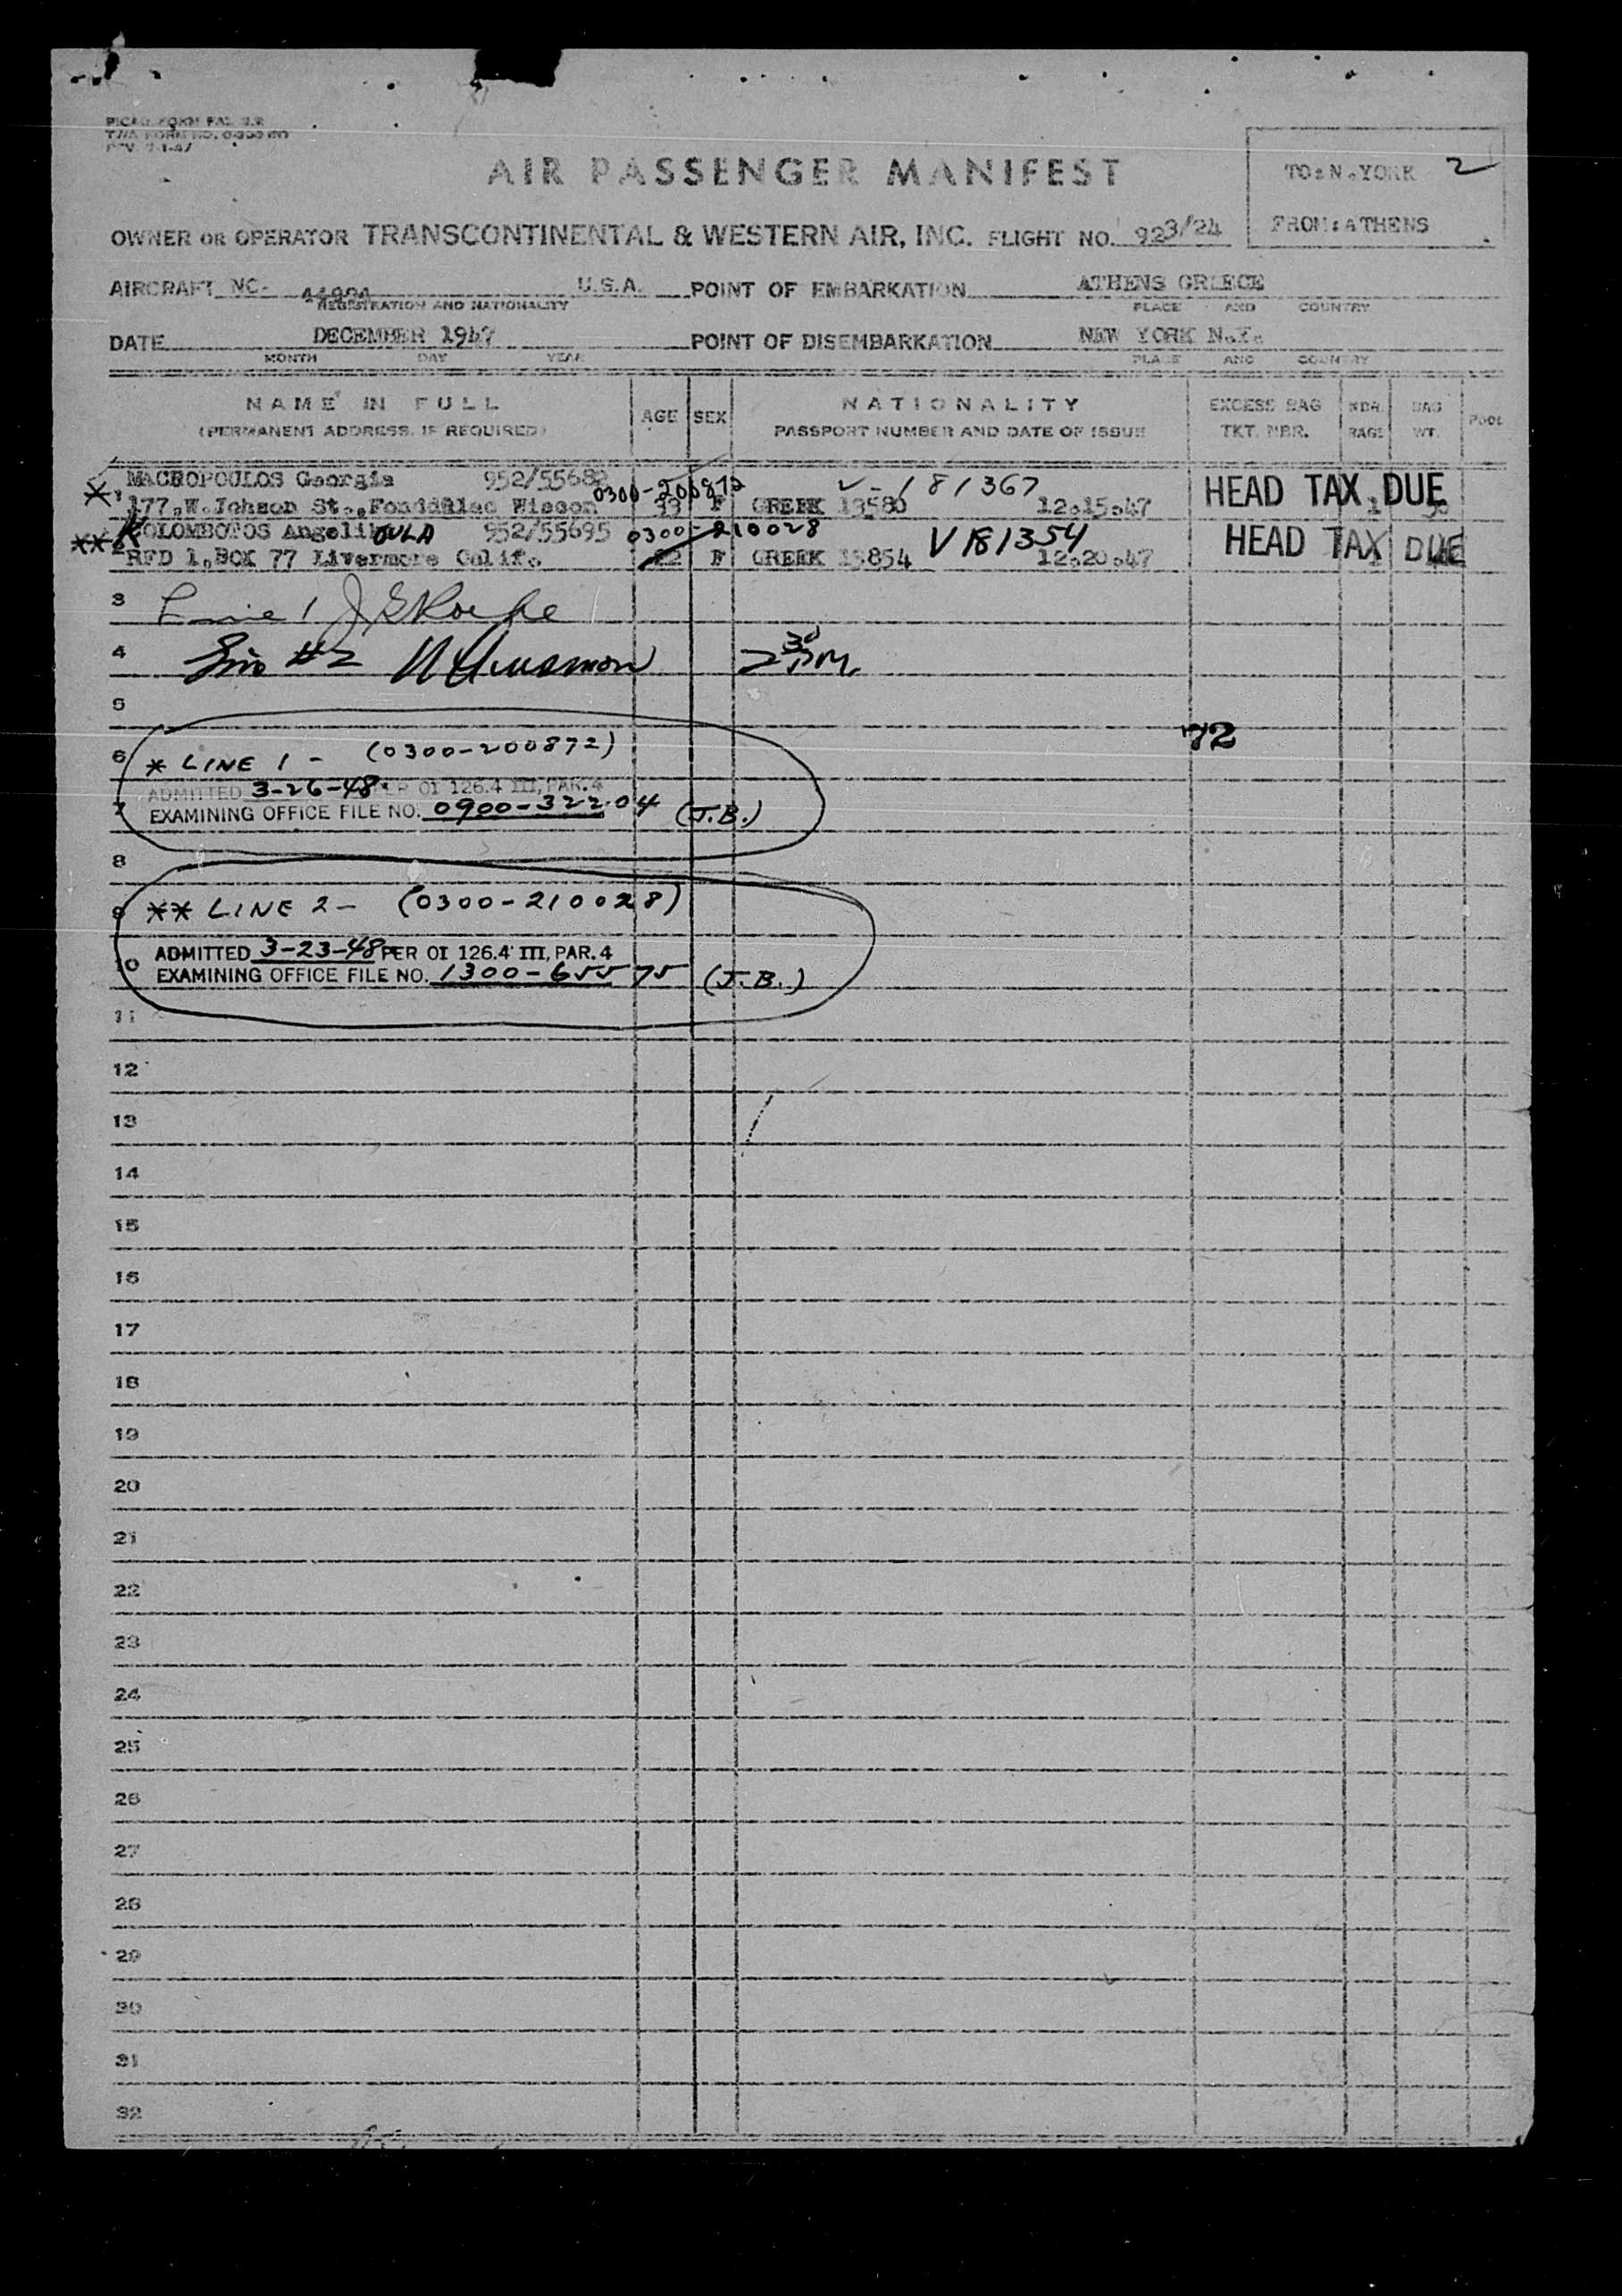 AIR PASSENGER MANIFEST
TO: N.YORK 2
FROM: ATHENS
OWNER OR OPERATOR TRANSCONTINENTAL & WESTERN AIR, INC. FLIGHT NO. 923/24
AIRCRAFT NC- U.S.A. POINT OF EMBARKATION ATHENS GREECE
REGISTRATION AND NATIONALITY PLACE AND COUNTRY
DATE DECEMBER 1947 POINT OF DISEMBARKATION NEW YORK N.Y.
MONTH DAY YEAR PLACE AND COUNTRY
NAME IN FULL AGE SEX NATIONALITY EXCESS BAG NBR. BAG POOL
(PERMANENT ADDRESS, IF REQUIRED) PASSPORT NUMBER AND DATE OF ISSUE TKT. NBR. BAGS WT.
MACROPOULOS Georgia 952/55682 0300-200872 V-181367 HEAD TAX DUE
* 1 177,W.Johson St., Fonddulac Wiscon F GREEK 13580 12.15.47
KOLOMBOTOS AngelikOULA 952/55695 0300-210028 V181354 HEAD TAX DUE
** 2 RFD 1,BOX 77 Livermore Calif. 22 F GREEK 13854 12.20.47
3 Line 1
4 Line #2 2 30 PM.
5
72
6 * LINE 1 - (0300-200872)
ADMITTED 3-26-48 PER OI 126.4 III, PAR.4
7 EXAMINING OFFICE FILE NO. 0900-32204 (J.B.)
8
9 ** LINE 2 - (0300-210028)
ADMITTED 3-23-48 PER OI 126.4 III, PAR.4
10 EXAMINING OFFICE FILE NO. 1300-65575 (J.B.)
11
12
13
14
15
16
17
18
19
20
21
22
23
24
25
26
27
28
29
30
31
32